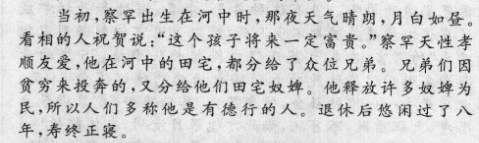 当初，察罕出生在河中时，那夜天气晴朗，月白如昼。
看相的人祝贺说：“这个孩子将来一定富贵。”察罕天性孝
顺友爱，他在河中的田宅，都分给了众位兄弟。兄弟们因
贫穷来投奔的，又分给他们田宅奴婢。他释放许多奴婢为
民，所以人们多称他是有德行的人。退休后悠闲过了八
年，寿终正寝。